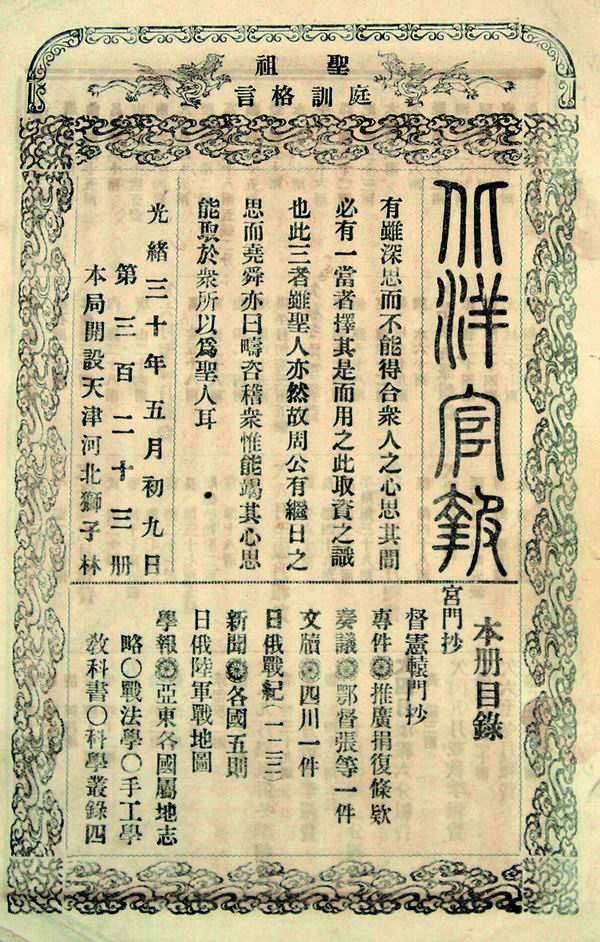 聖祖
庭訓格言
北洋官報
有雖深思而不能得合衆人之心思其間
必有一當者擇其是而用之此取資之識
也此三者雖聖人亦然故周公有繼日之
思而堯舜亦曰疇咨稽衆惟能竭其心思
能取於衆所以爲聖人耳
光緒三十年五月初九日
第三百二十三册
本局開設天津河北獅子林
本册目錄
宮門抄
督憲轅門抄
專件 推廣捐復條欵
奏議 鄂督張等一件
文牘 四川一件
日俄戰紀(一二三)
新聞 各國五則
日俄陸軍戰地圖
學報 亞東各國屬地志
略〇戰法學〇手工學
教科書〇科學叢錄四